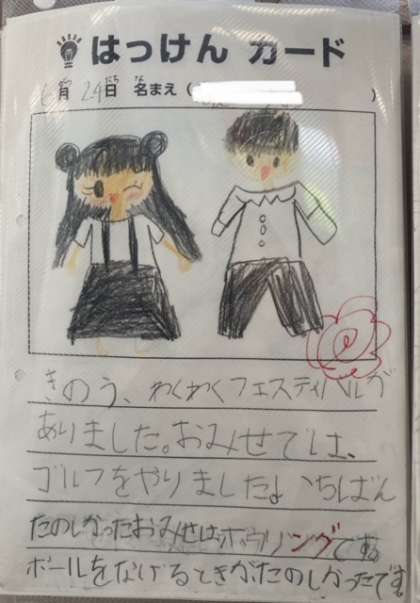 はっけんカード
6月24日 名まえ( )
きのう、わくわくフェスティバルが
ありました。おみせでは、
ゴルフをやりました。いちばん
たのしかったおみせは、ボウリングです。
ボールをなげるときがたのしかったです。